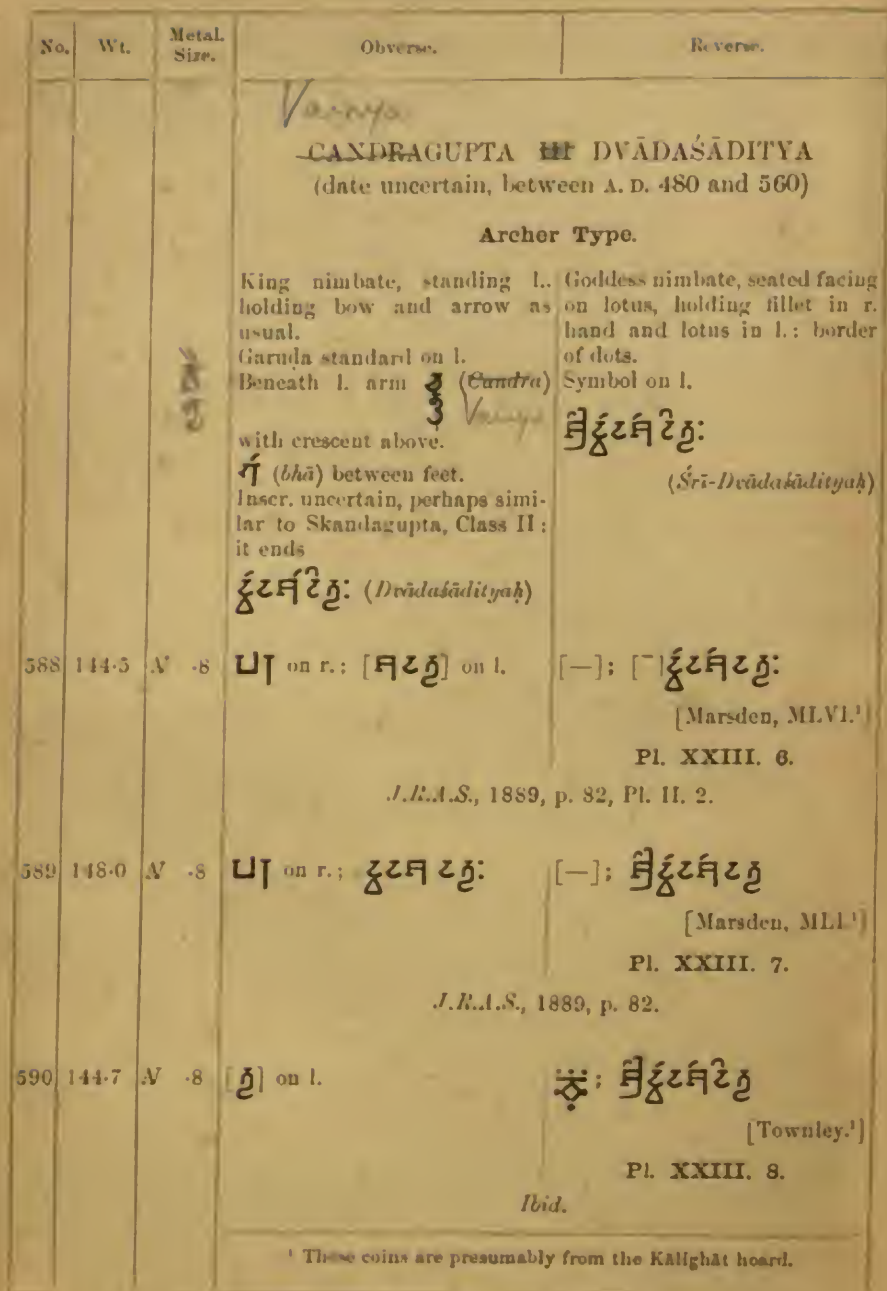 No. Wt. Metal. Size. Obverse. Reverse.
Vainya
CANDRAGUPTA III DVĀDAŚĀDITYA
(date uncertain, between A. D. 480 and 560)
Archer Type.
King nimbate, standing l.,
holding bow and arrow as
usual.
Garuḍa standard on l.
Beneath l. arm (Candra)
Vainya
with crescent above.
(bhā) between feet.
Inscr. uncertain, perhaps simi-
lar to Skandagupta, Class II:
it ends
(Dvādaśādityaḥ)
Goddess nimbate, seated facing
on lotus, holding fillet in r.
hand and lotus in l.: border
of dots.
Symbol on l.
(Śrī-Dvādaśādityaḥ)
588 144·5 N ·8 on r.; on l. [—];
[Marsden, MLVI.¹]
Pl. XXIII. 6.
J.R.A.S., 1889, p. 82, Pl. II. 2.
589 148·0 N ·8 on r.; [—];
[Marsden, MLI.¹]
Pl. XXIII. 7.
J.R.A.S., 1889, p. 82.
590 144·7 N ·8 on l.
[Townley.¹]
Pl. XXIII. 8.
Ibid.
¹ These coins are presumably from the Kālīghāt hoard.